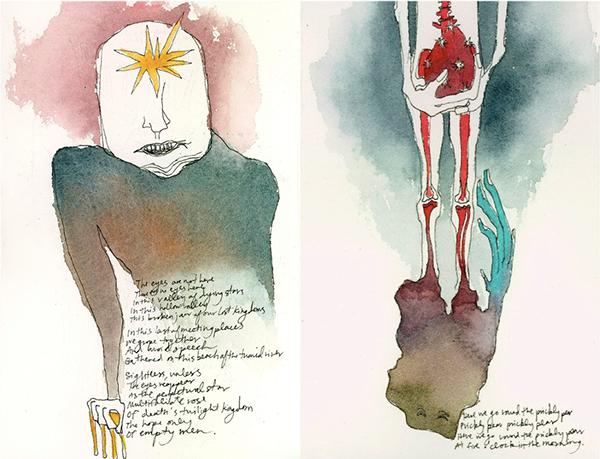 The eyes are not here
There are no eyes here
In this valley of dying stars
In this hollow valley
this broken jaw of our lost kingdoms
In this last of meeting places
We grope together
And avoid speech
Gathered on this beach of the tumid river
Sightless, unless
The eyes reappear
As the perpetual star
Multifoliate rose
Of death's twilight kingdom
The hope only
Of empty men.
Here we go round the prickly pear
Prickly pear prickly pear
Here we go round the prickly pear
At five o'clock in the morning.